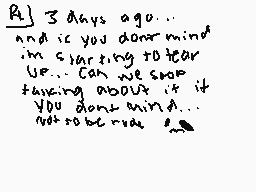 R] 3 days ago...
and if you dont mind
im starting to tear
up... can we stop
talking about it if
you dont mind...
not to be rude